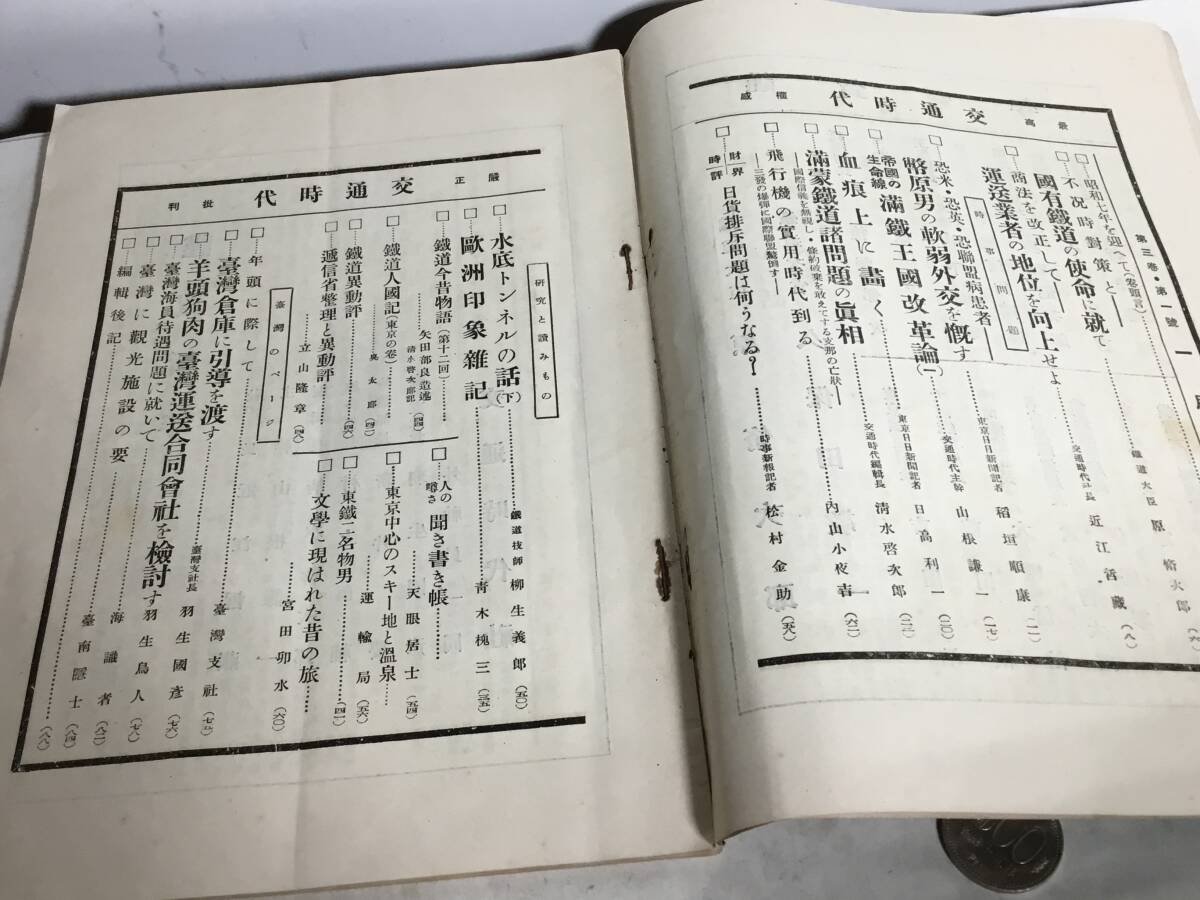 最高 交通時代 權威
第三卷・第一號
昭和七年を迎へて(卷頭言)
不况時對策と
國有鐵道の使命に就て 鐵道大臣 原 脩次郎 (六)
商法を改正して
運送業者の地位を向上せよ 交通時代社長 近江 (八)
時事問題
恐米・恐英・恐聯盟病患者 東京日日新聞記者 稻垣順康 (一一)
幣原男の軟弱外交を慨す 交通時代主幹 山根謙一 (一七)
帝國の生命線 滿鐵王國改革論(一) 東京日日新聞記者 日高利一 (二〇)
血痕上に畵く 交通時代編輯長 清水啓次郎 (二三)
滿蒙鐵道諸問題の眞相
―國際信義を無視し・條約破棄を敢えてする支那の亡狀― 內山小夜吉 (六二)
飛行機の實用時代到る
―三發の爆彈に國際聯盟驚倒す―
財界時評 日貨排斥問題は何うなる? 時事新報記者 松村金助 (五八)
嚴正 交通時代 批判
研究と讀みもの
水底トンネルの話(下) 鐵道技師 柳生義郎 (五〇)
歐洲印象雜記 青木槐三 (三五)
鐵道今昔物語(第十二回) 矢田部良造述 清水啓次郎記 (四四)
鐵道人國記(東京の卷) 太郎 (四二)
鐵道異動評 (四六)
遞信省整理と異動評 立山隆章 (四八)
人の噂さ 聞き書き帳 天眼居士 (五四)
東京中心のスキー地と溫泉 運輸局 (五六)
東鐵二名物男 (四一)
文學に現はれた昔の旅 宮田卯水 (六〇)
臺灣のページ
年頭に際して 臺灣支社 (七五)
臺灣倉庫に引導を渡す 臺灣支社長 羽生國彥 (七六)
羊頭狗肉の臺灣運送合同會社を檢討す 羽生鳥人 (七八)
臺灣海員待遇問題に就いて 海議者 (八二)
臺灣に觀光施設の要 臺南隱士 (八四)
編輯後記 (八八)